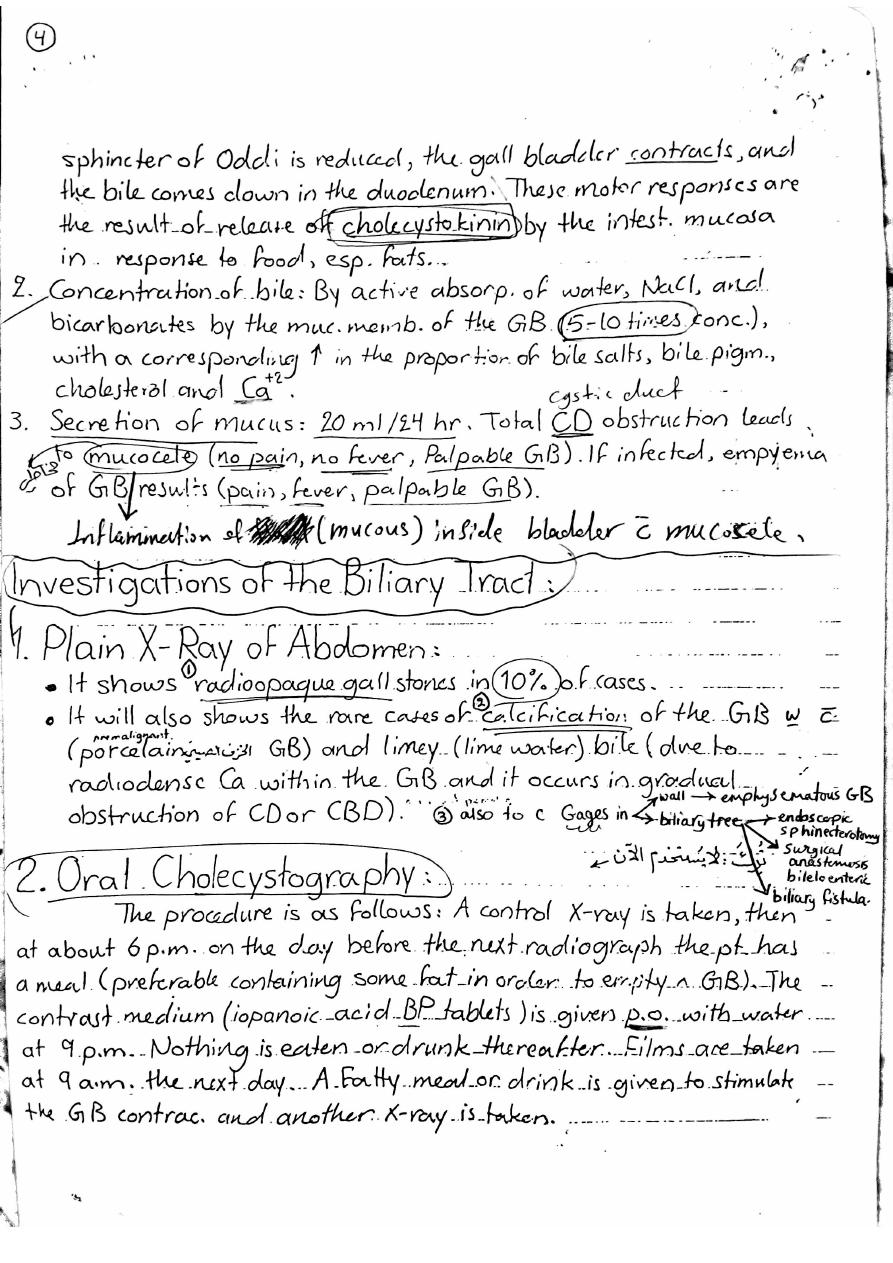 4
sphincter of Oddi is reduced, the gall bladder contracts, and
the bile comes down in the duodenum. These motor responses are
the result of release of cholecystokinin by the intest. mucosa
in response to food, esp. fats...
2. Concentration of bile: By active absorp. of water, NaCl, and
bicarbonates by the muc. memb. of the GB (5-10 times conc.),
with a corresponding ↑ in the proportion of bile salts, bile pigm.,
cholesterol and Ca+2.
cystic duct
3. Secretion of mucus: 20 ml/24 hr. Total CD obstruction leads
to mucocete (no pain, no fever, Palpable GB). If infected, empyema
of GB results (pain, fever, palpable GB).
Inflammection of (mucous) inside bladder c̄ mucocete.
Investigations of the Biliary Tract:
1. Plain X-Ray of Abdomen:
• It shows ① radioopaque gall stones in 10% of cases.
• It will also shows the rare cases of ② calcification of the GB w c̄
premalignant
(porcelain GB) and limey (lime water) bile (due to
radiodense Ca within the GB and it occurs in gradual
obstruction of CD or CBD). ③ also to c Gages in
wall → emphysematous GB
biliary tree → endoscopic
sphinecterotomy
surgical
anastemoss
bileloenteric
biliary fistula.
لا يستخدم الآن
2. Oral Cholecystography:
The procedure is as follows: A control X-ray is taken, then
at about 6 p.m. on the day before the next radiograph the pt has
a meal (preferable containing some fat in order to empty GB). The
contrast medium (iopanoic acid BP tablets) is given p.o. with water
at 9 p.m. Nothing is eaten or drunk thereafter. Films are taken
at 9 a.m. the next day. A Fatty meal or drink is given to stimulate
the GB contrac. and another X-ray is taken.